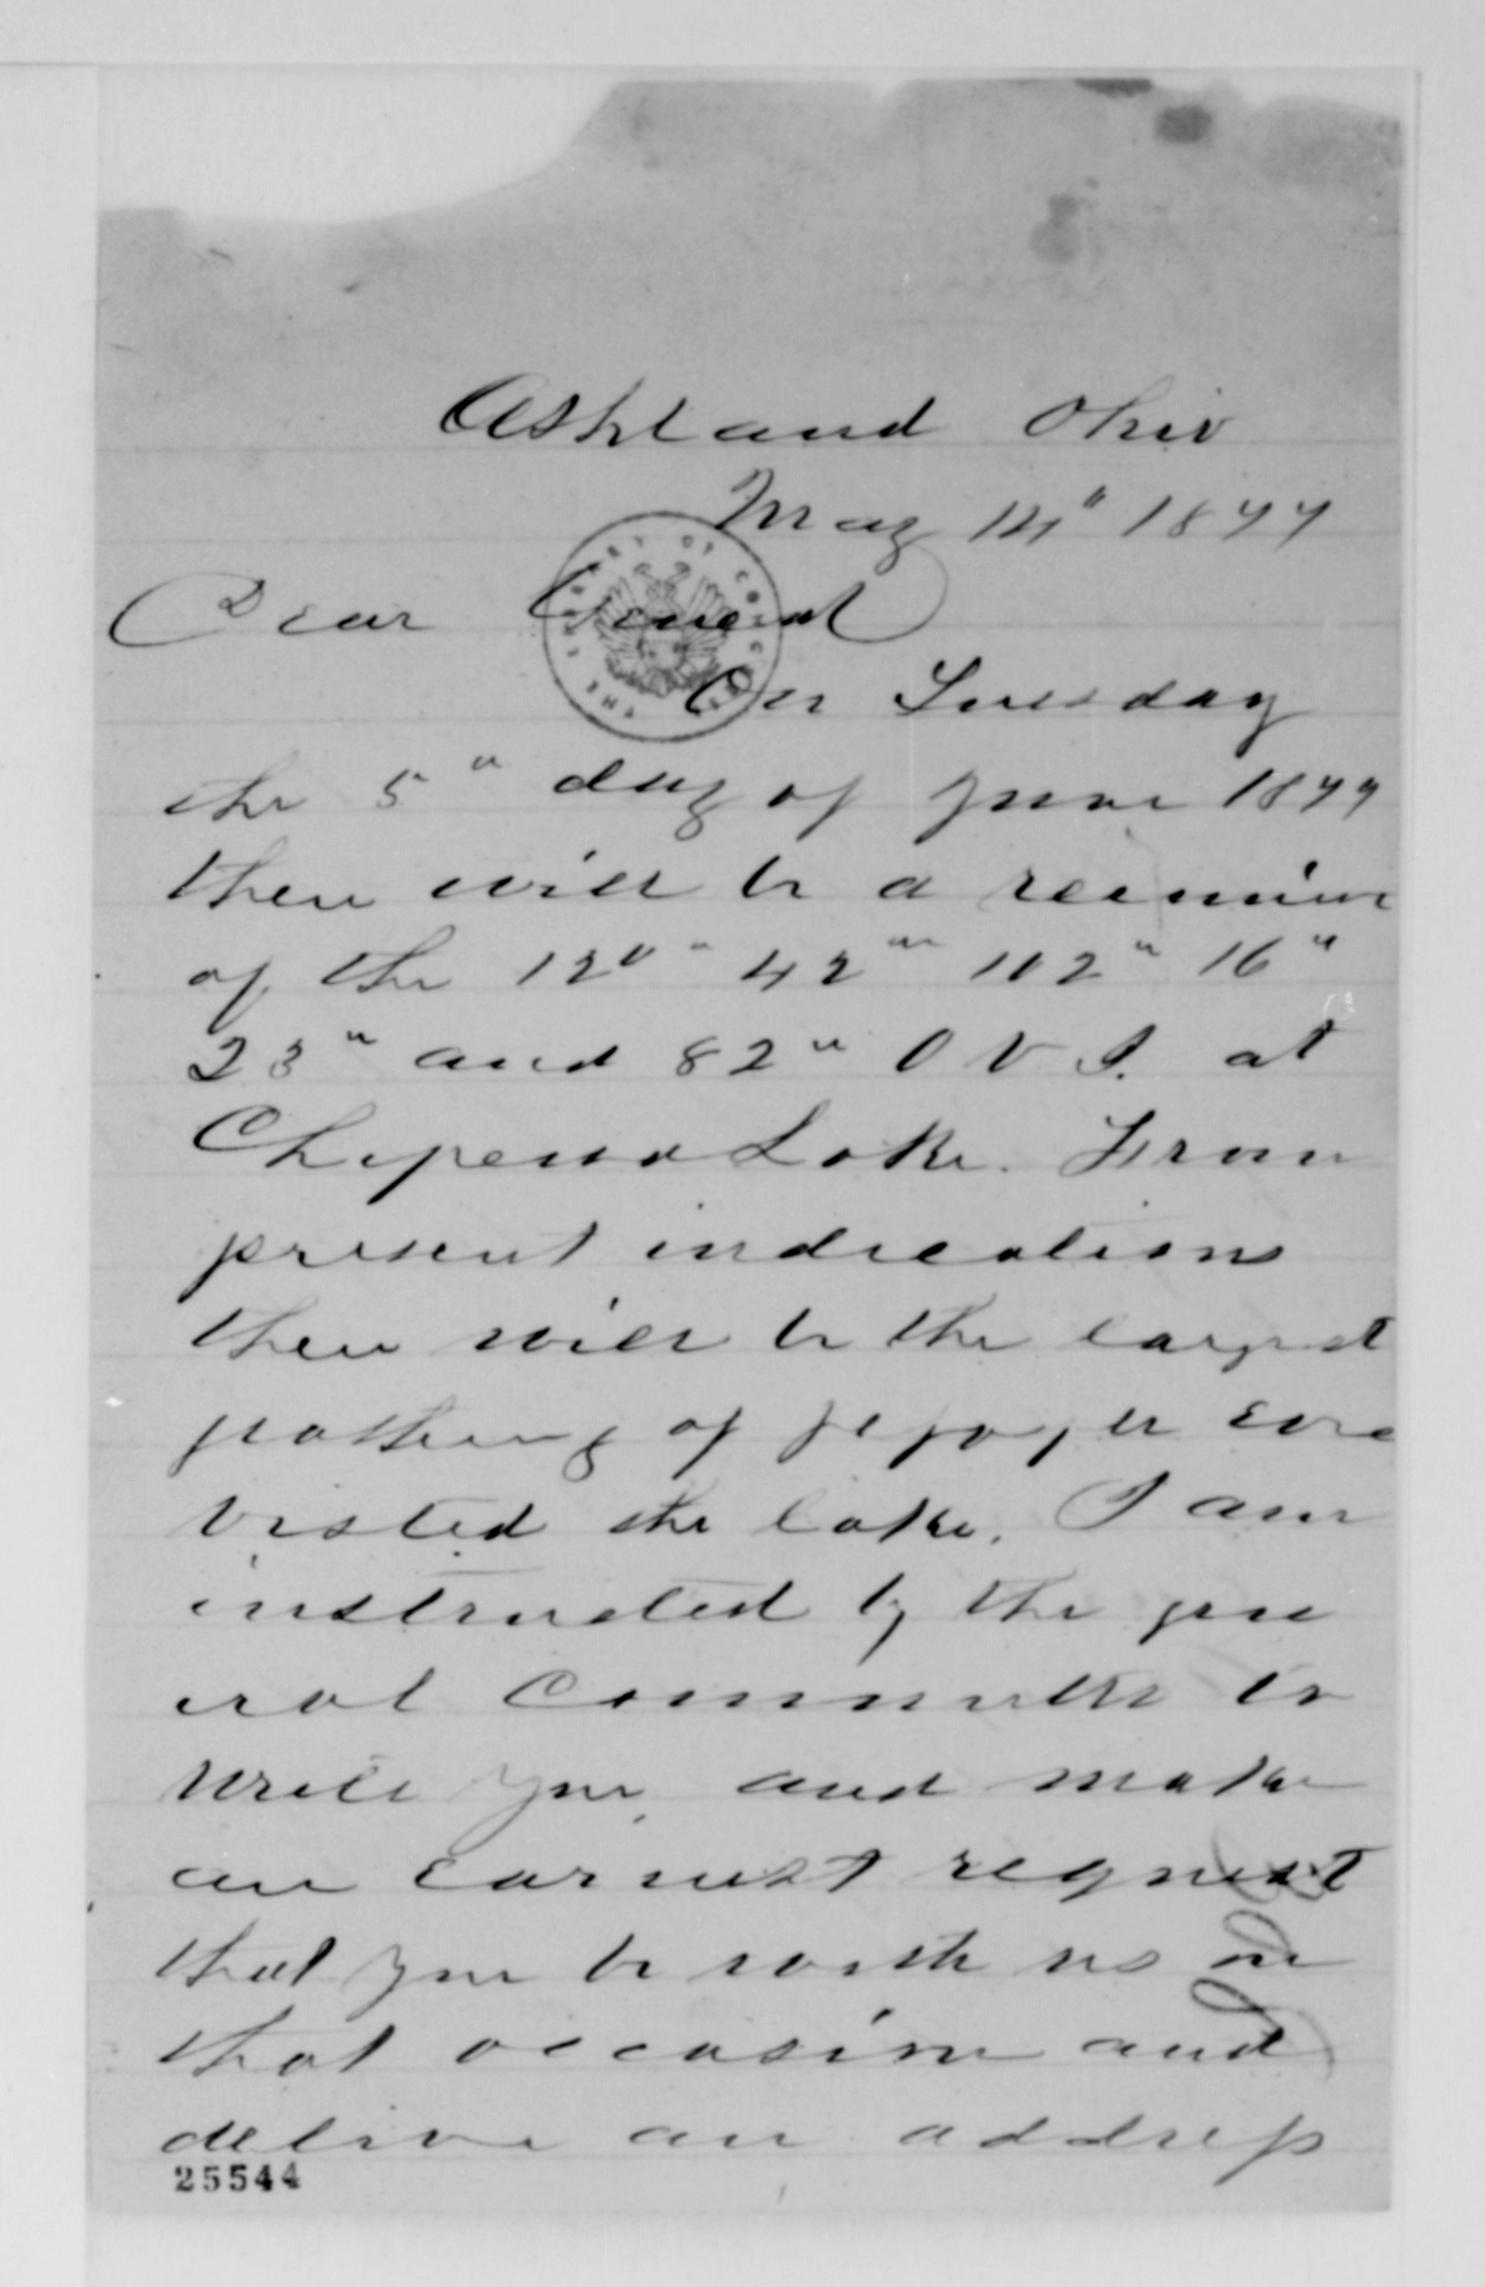 Ashland Ohio
May 14" 1877
Dear General
On Tuesday
the 5" day of June 1877
there will be a reunion
of the 120" 42" 102" 16"
23" and 82" O V I. at
Chipewa Lake. From
present indications
there will be the largest
gathering of people ever
visted the lake. I am
instructed by the gen
eral Committee to
write you and make
an earnest request
that you be with us on
that occasion and
deliver an address
25544
THE LIBRARY OF CONGRESS